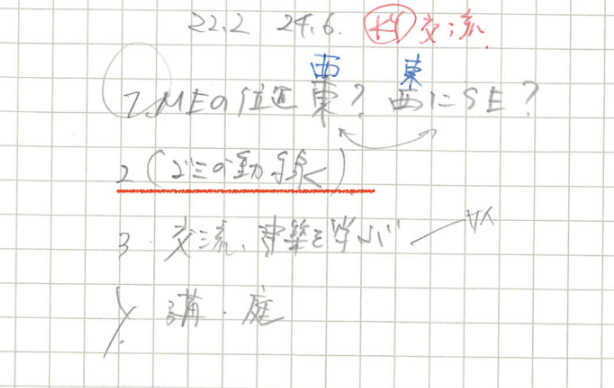 22.2 24.6. 交流
西 東
1 MEの位置 東? 西にSE?
2 (ゴミの動線)
3. 交流、建築を学ぶ
講・庭